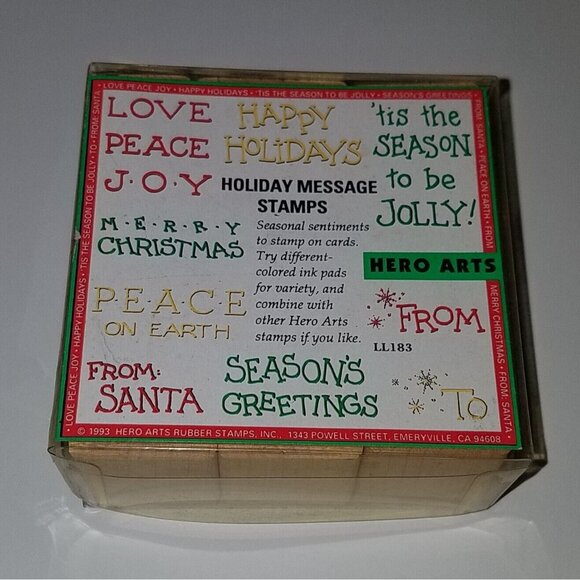 • LOVE PEACE JOY • HAPPY HOLIDAYS • 'TIS THE SEASON TO BE JOLLY • SEASON'S GREETINGS •
LOVE
PEACE
J•O•Y
HAPPY
HOLIDAYS
'tis the
SEASON
to be
JOLLY!
HOLIDAY MESSAGE
STAMPS
M•E•R•R•Y
CHRISTMAS
Seasonal sentiments
to stamp on cards.
Try different-
colored ink pads
for variety, and
combine with
other Hero Arts
stamps if you like.
HERO ARTS
P•E•A•C•E
ON EARTH
FROM
LL183
FROM:
SANTA
SEASON'S
GREETINGS
TO
• LOVE PEACE JOY • HAPPY HOLIDAYS • 'TIS THE SEASON TO BE JOLLY • TO • FROM: SANTA
• FROM: SANTA • PEACE ON EARTH • FROM
MERRY CHRISTMAS • FROM: SANTA •
© 1993 HERO ARTS RUBBER STAMPS, INC., 1343 POWELL STREET, EMERYVILLE, CA 94608